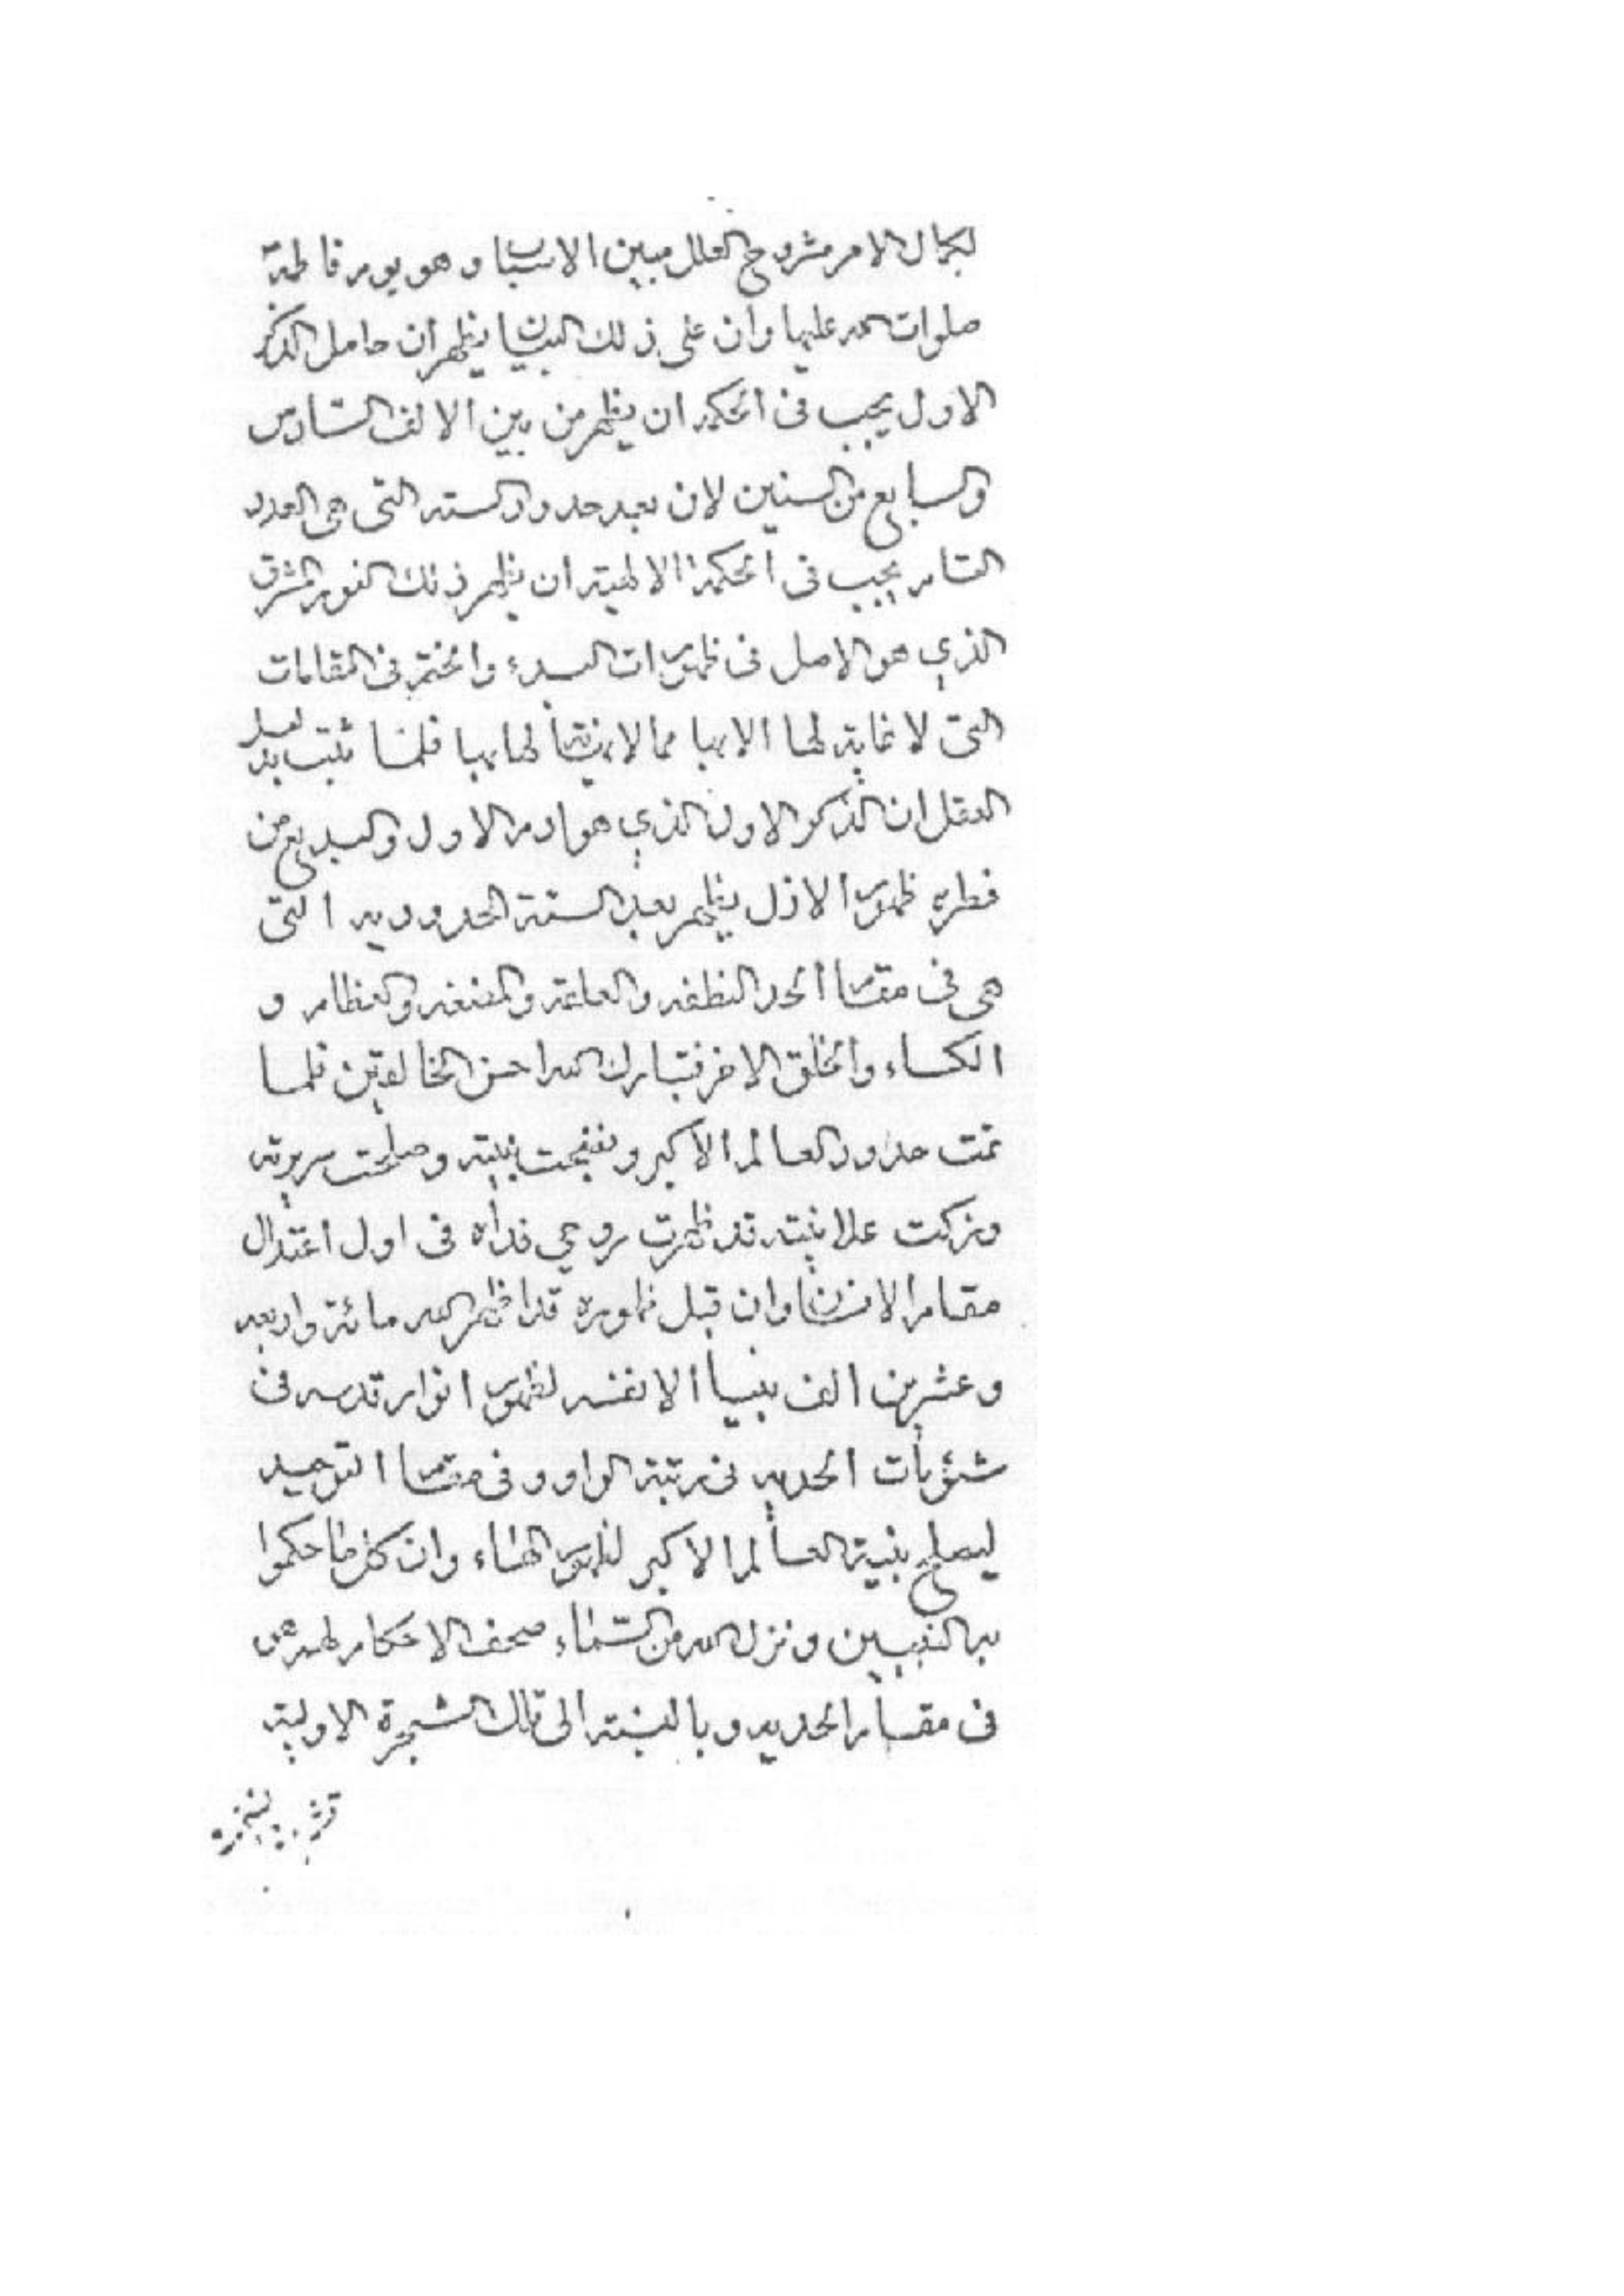 لكمال الامر مشروح العلل مبين الاسباب وهو يوم فاطمة
صلوات الله عليها وان على ذلك البيان يظهر ان حامل الذكر
الاول يجب فى الحكمه ان يظهر من بين الالف السّادس
والسابع من السنين لان بعد حدود الستة التى هى العدد
التام يجب فى الحكمة الالهية ان يظهر ذلك النور المشرق
الذي هو الاصل فى ظهورات البدء والختم فى المقامات
التى لا غاية لها الا بها مما لا نهاية لها بها فلمّا ثبت بدليل
العقل ان الذكر الاول الذي هو ادم الاول والبديع من
فطره ظهور الازل يظهر بعد الستة الحدوديه التى
هى فى مقام الحد النطفه والعلقة والمضغه والعظام و
الكساء والخلق الاخر فتبارك الله احسن الخالقين فلما
تمت حدود العالم الاكبر ونضجت بنيته وصلحت سريرته
وزكت علانيته قد ظهرت روحي فداه فى اول اعتدال
مقام الانسان وان قبل ظهوره قد اظهر الله مائة واربعه
وعشرين الف نبيا الا نفسه لظهور انوار قدسه فى
شئونات الحديه فى رتبة الواو وفى مقام التوحيد
ليصلح بنية العالم الاكبر لظهور الهاء وان كل ما حكموا
به النبيين ونزل الله من السّماء صحف الاحكام لهم هى
فى مقام الحديه وبالنسبة الى تلك الشجرة الاولية